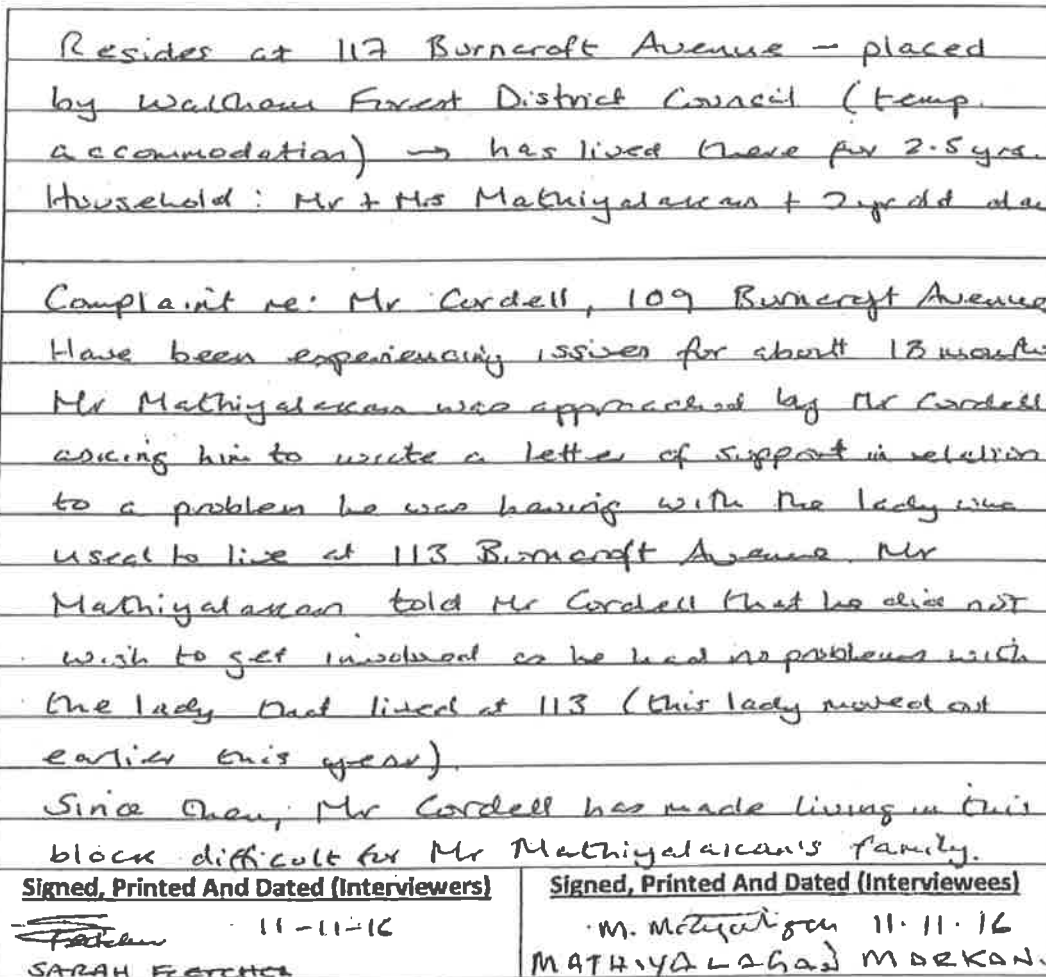 Resides at 117 Burncroft Avenue – placed
by Waltham Forest District Council (temp.
accommodation) → has lived there for 2.5 yrs.
Household: Mr + Mrs Mathiyalakan + 2 yr old
Complaint re: Mr Cordell, 109 Burncroft Avenue
Have been experiencing issues for about 18 months
Mr Mathiyalakan was approached by Mr Cordell
asking him to write a letter of support in relation
to a problem he was having with the lady who
used to live at 113 Burncroft Avenue. Mr
Mathiyalakan told Mr Cordell that he did not
wish to get involved as he had no problems with
the lady that lived at 113 (this lady moved out
earlier this year).
Since then, Mr Cordell has made living in this
block difficult for Mr Mathiyalakan's family.
Signed, Printed And Dated (Interviewers)
11-11-16
SARAH FLETCHER
Signed, Printed And Dated (Interviewees)
11.11.16
MATHIYALAGAN MARKAN.